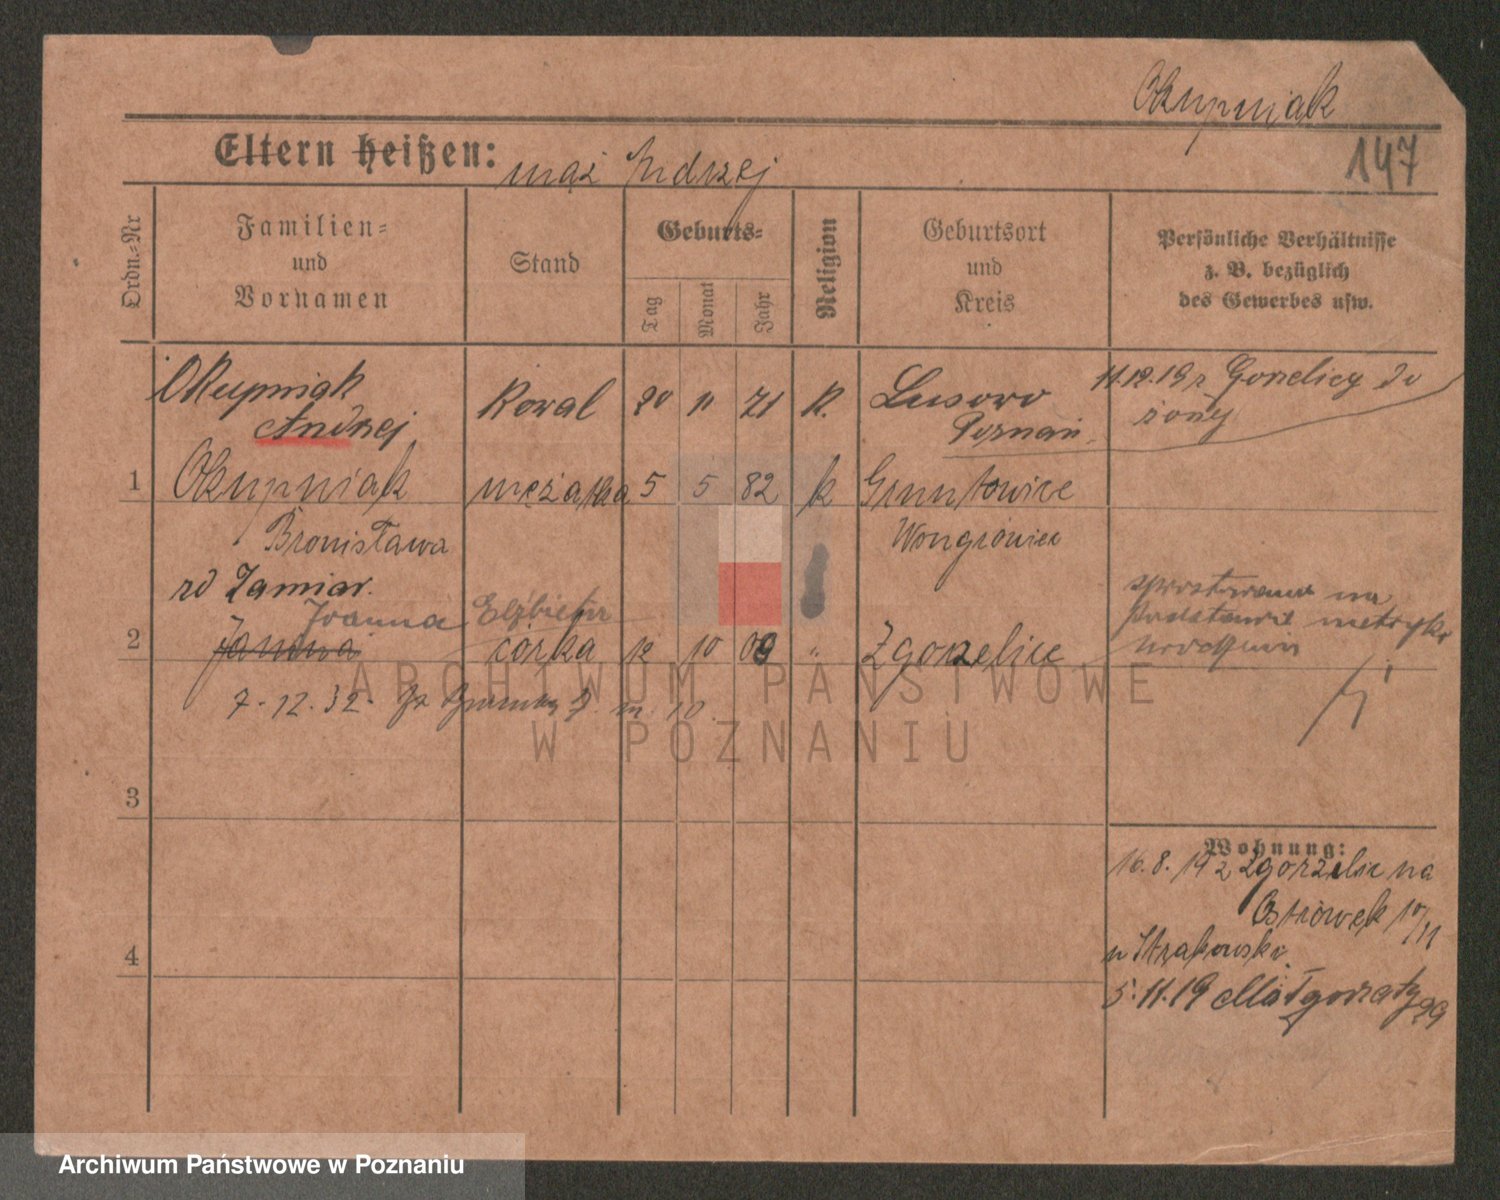 Okupniak
147
Eltern heißen: mąż Andrzej
Ordn.-Nr
Familien- und Vornamen
Stand
Geburts-
Tag
Monat
Jahr
Religion
Geburtsort und Kreis
Persönliche Verhältnisse z. B. bezüglich des Gewerbes usw.
Okupniak Kowal 20 11 71 K. Lusowo 11.12.19 z Gorzelicy do
Andrzej Poznań żony
1 Okupniak mężatka 5 5 82 k
Bronisława
rd Zamiar.
Joanna Elżbieta
2 Janina córka 12 10 09 " Zgorzelice
sprostowano na
podstawie metryki
7.-12.32.
3
4
Wohnung:
16.8.19 z Zgorzelic na
Ostrówek 10/11
5.11.19 Małgorzaty
ARCHIWUM PAŃSTWOWE
W POZNANIU
Archiwum Państwowe w Poznaniu